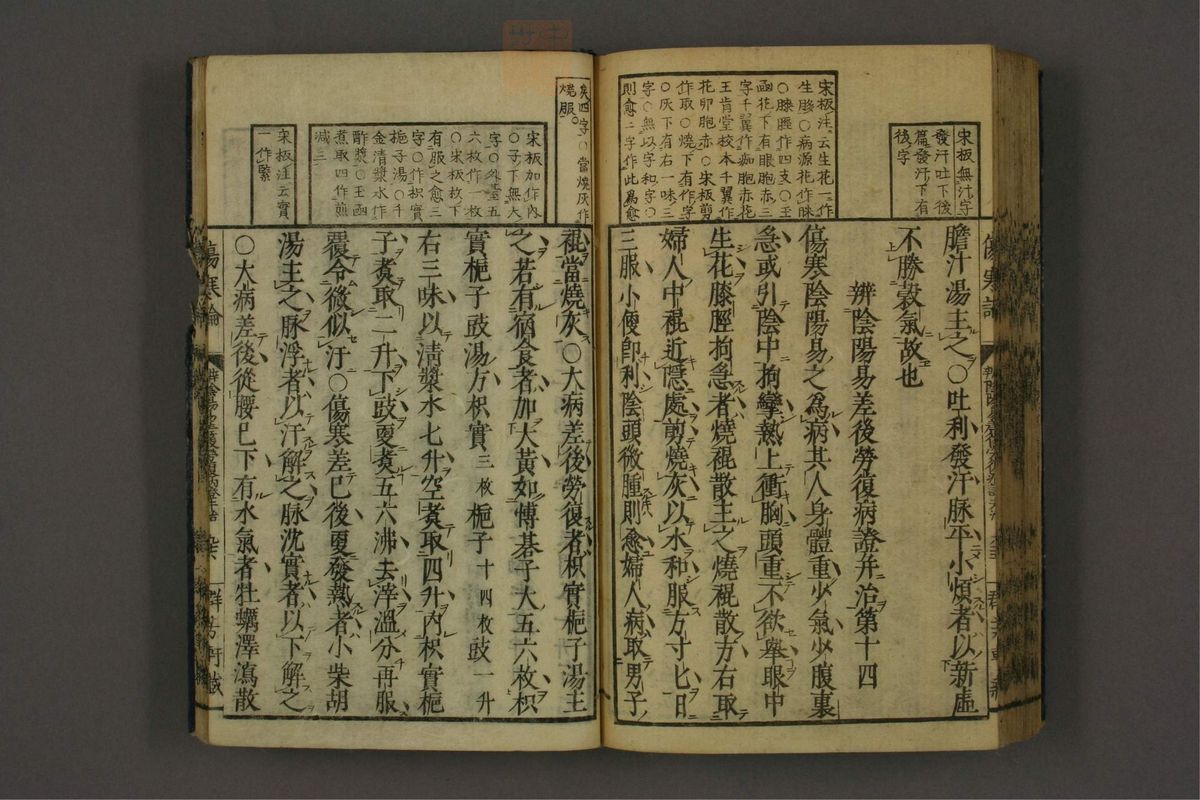 宋板無汁字
發汗吐下後
篇發汗下有
後字
膽汁湯主之○吐利發汗脉平小煩者以新虛
不勝穀氣故也
辨陰陽易差後勞復病證并治第十四
宋板注云生花一作
生䏖○病源花作眵
○膝脛作四支○王
函花下有眼胞赤三
字千翼作痂胞赤花
王肯堂校本千翼作
花卯胞赤○宋板剪
作取○燒下有作字
○灰下有右一味三
字○無以字和字○
則愈二字作此爲愈
傷寒陰陽易之爲病其人身體重少氣少腹裏
急或引陰中拘攣熱上衝胸頭重不欲舉眼中
生花膝脛拘急者燒裩散主之燒裩散方右取
婦人中裩近隱處剪燒灰以水和服方寸匕日
三服小便卽利陰頭微腫則愈婦人病取男子
矣四字○當燒灰作
燒服。
裩當燒灰○大病差後勞復者枳實梔子湯主
宋板加作內
○子下無大
字○外臺五
六枚作一枚
○宋板枚下
有服之愈三
字○作枳實
梔子湯○千
金清漿水作
酢漿○王函
煮取四作煎
減三
之若有宿食者加大黃如博碁子大五六枚枳
實梔子豉湯方枳實三枚梔子十四枚豉一升
右三味以清漿水七升空煮取四升內枳實梔
子煮取二升下豉更煮五六沸去滓溫分再服
覆令微似汗○傷寒差已後更發熱者小柴胡
宋板注云實
一作緊
湯主之脉浮者以汗解之脉沈實者以下解之
○大病差後從腰已下有水氣者牡蠣澤瀉散
傷寒論